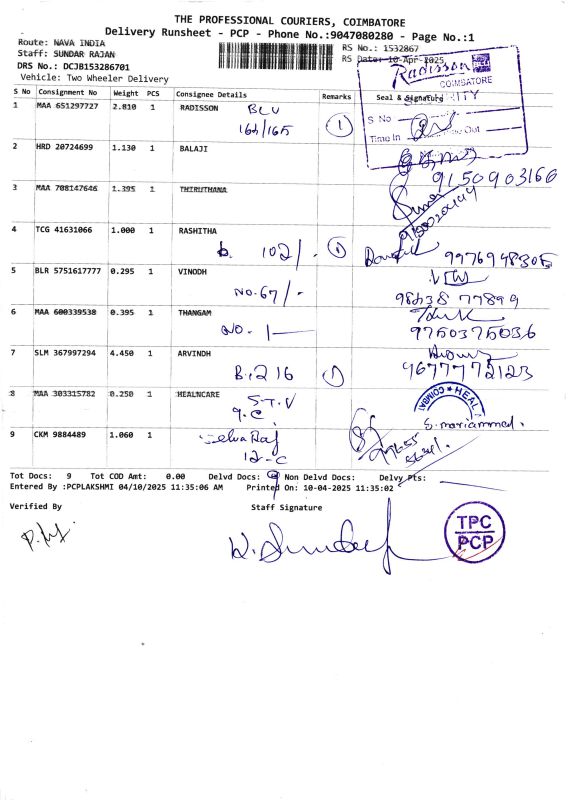 THE PROFESSIONAL COURIERS, COIMBATORE
Delivery Runsheet - PCP - Phone No.:9047080280 - Page No.:1
Route: NAVA INDIA
RS No.: 1532867
Staff: SUNDAR RAJAN
RS Date: 10-Apr-2025
DRS No.: DCJB153286701
Vehicle: Two Wheeler Delivery
Radisson
COIMBATORE
S No
Time In
S No Consignment No Weight PCS Consignee Details Remarks Seal & Signature
1 MAA 651297727 2.810 1 RADISSON BLU
1
2 HRD 20724699 1.130 1 BALAJI
9150903166
3 MAA 708147646 1.395 1 THIRUTHANA
4 TCG 41631066 1.000 1 RASHITHA
102/- 1 9976948305
5 BLR 5751617777 0.295 1 VINODH
NO.67/-
98638 77899
6 MAA 600339538 0.395 1 THANGAM
NO. 1
9750375036
7 SLM 367997294 4.450 1 ARVINDH
B.216 1 9677772123
8 MAA 303315782 0.250 1 HEALNCARE
S.T.V
9.C.
HEAL
COIMBAT
S.mariammed.
9 CKM 9884489 1.060 1
Selva Raj
12-C
Tot Docs: 9 Tot COD Amt: 0.00 Delvd Docs: Non Delvd Docs: Delvy Pts:
Entered By :PCPLAKSHMI 04/10/2025 11:35:06 AM Printed On: 10-04-2025 11:35:02
Verified By Staff Signature
TPC
PCP